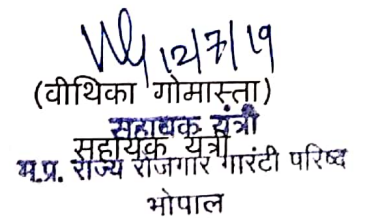 12/7/19
(वीथिका गोमास्ता)
सहायक यंत्री
सहायक यंत्री
म.प्र. राज्य रोजगार गारंटी परिषद
भोपाल